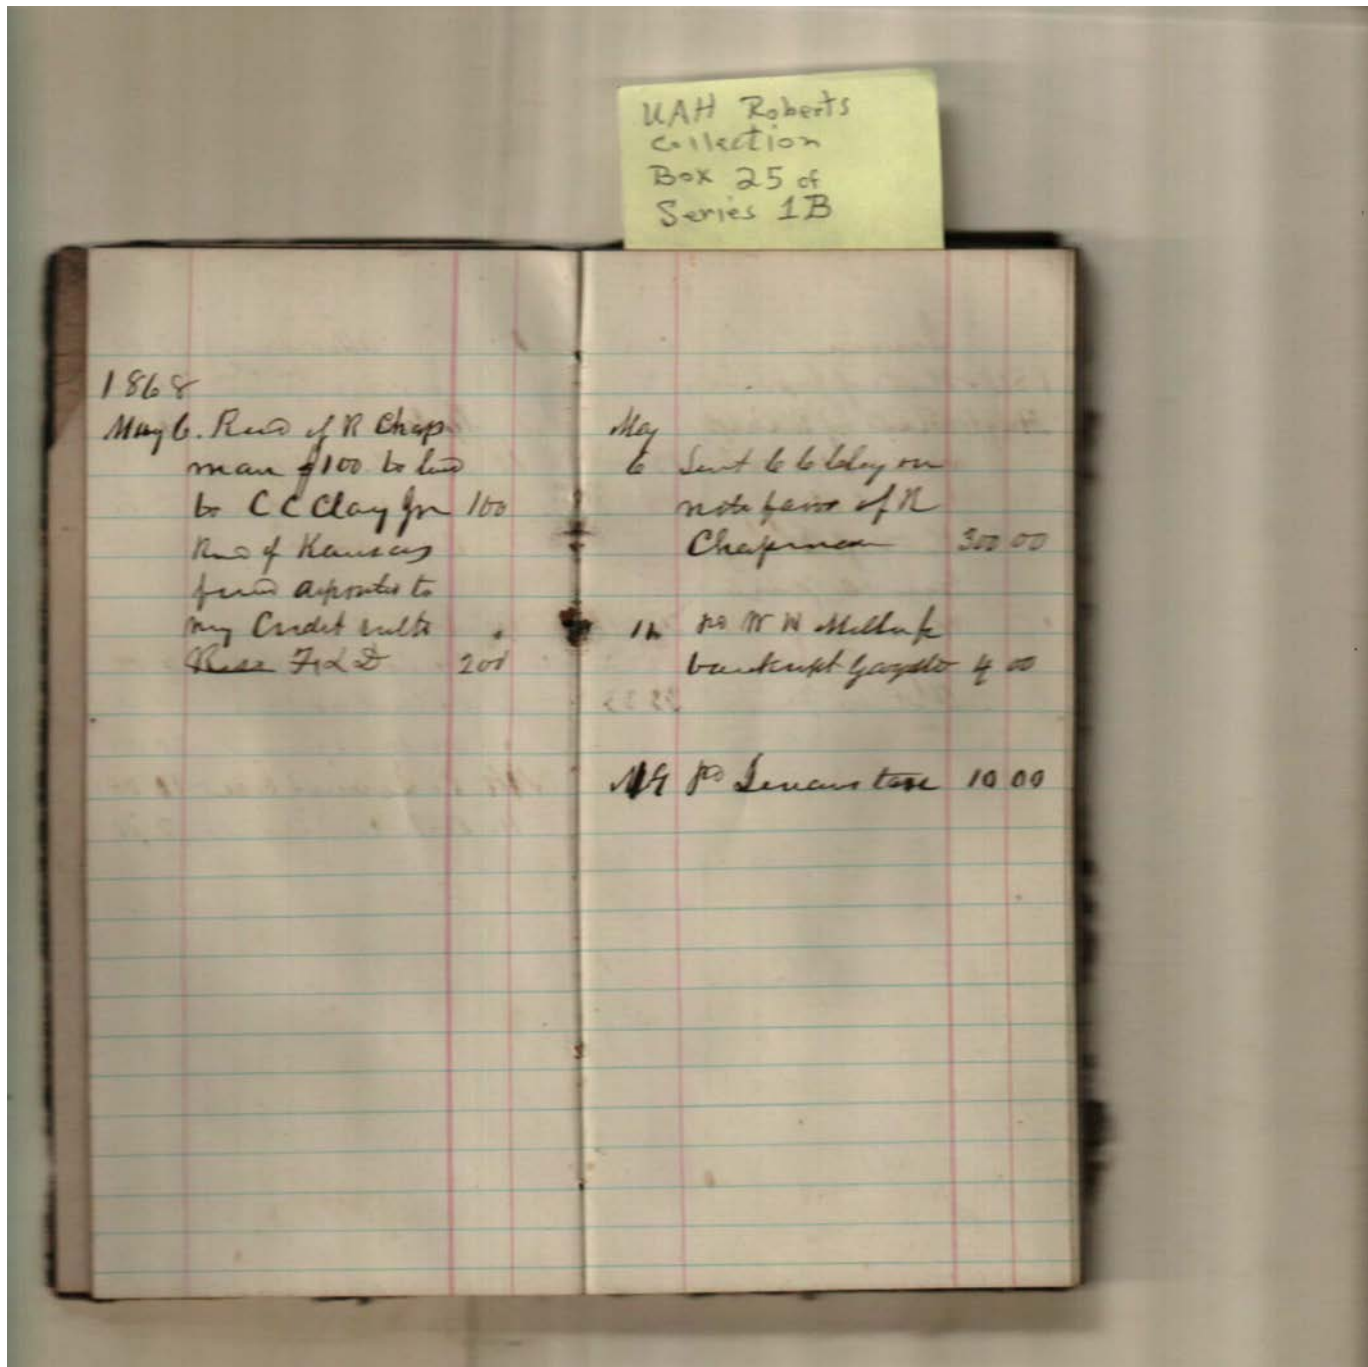 UAH Roberts
Collection
Box 25 of
Series 1B
1868
May 6. Recd of R Chap
man $100 to
to C C Clay Jr 100
Recd of Kansas
fund deposited to
my Credit with
200
May
6 Sent C C Clay on
note favor of R
Chapman 300 00
pd W W
bankrupt 4 00
pd tax 10 00